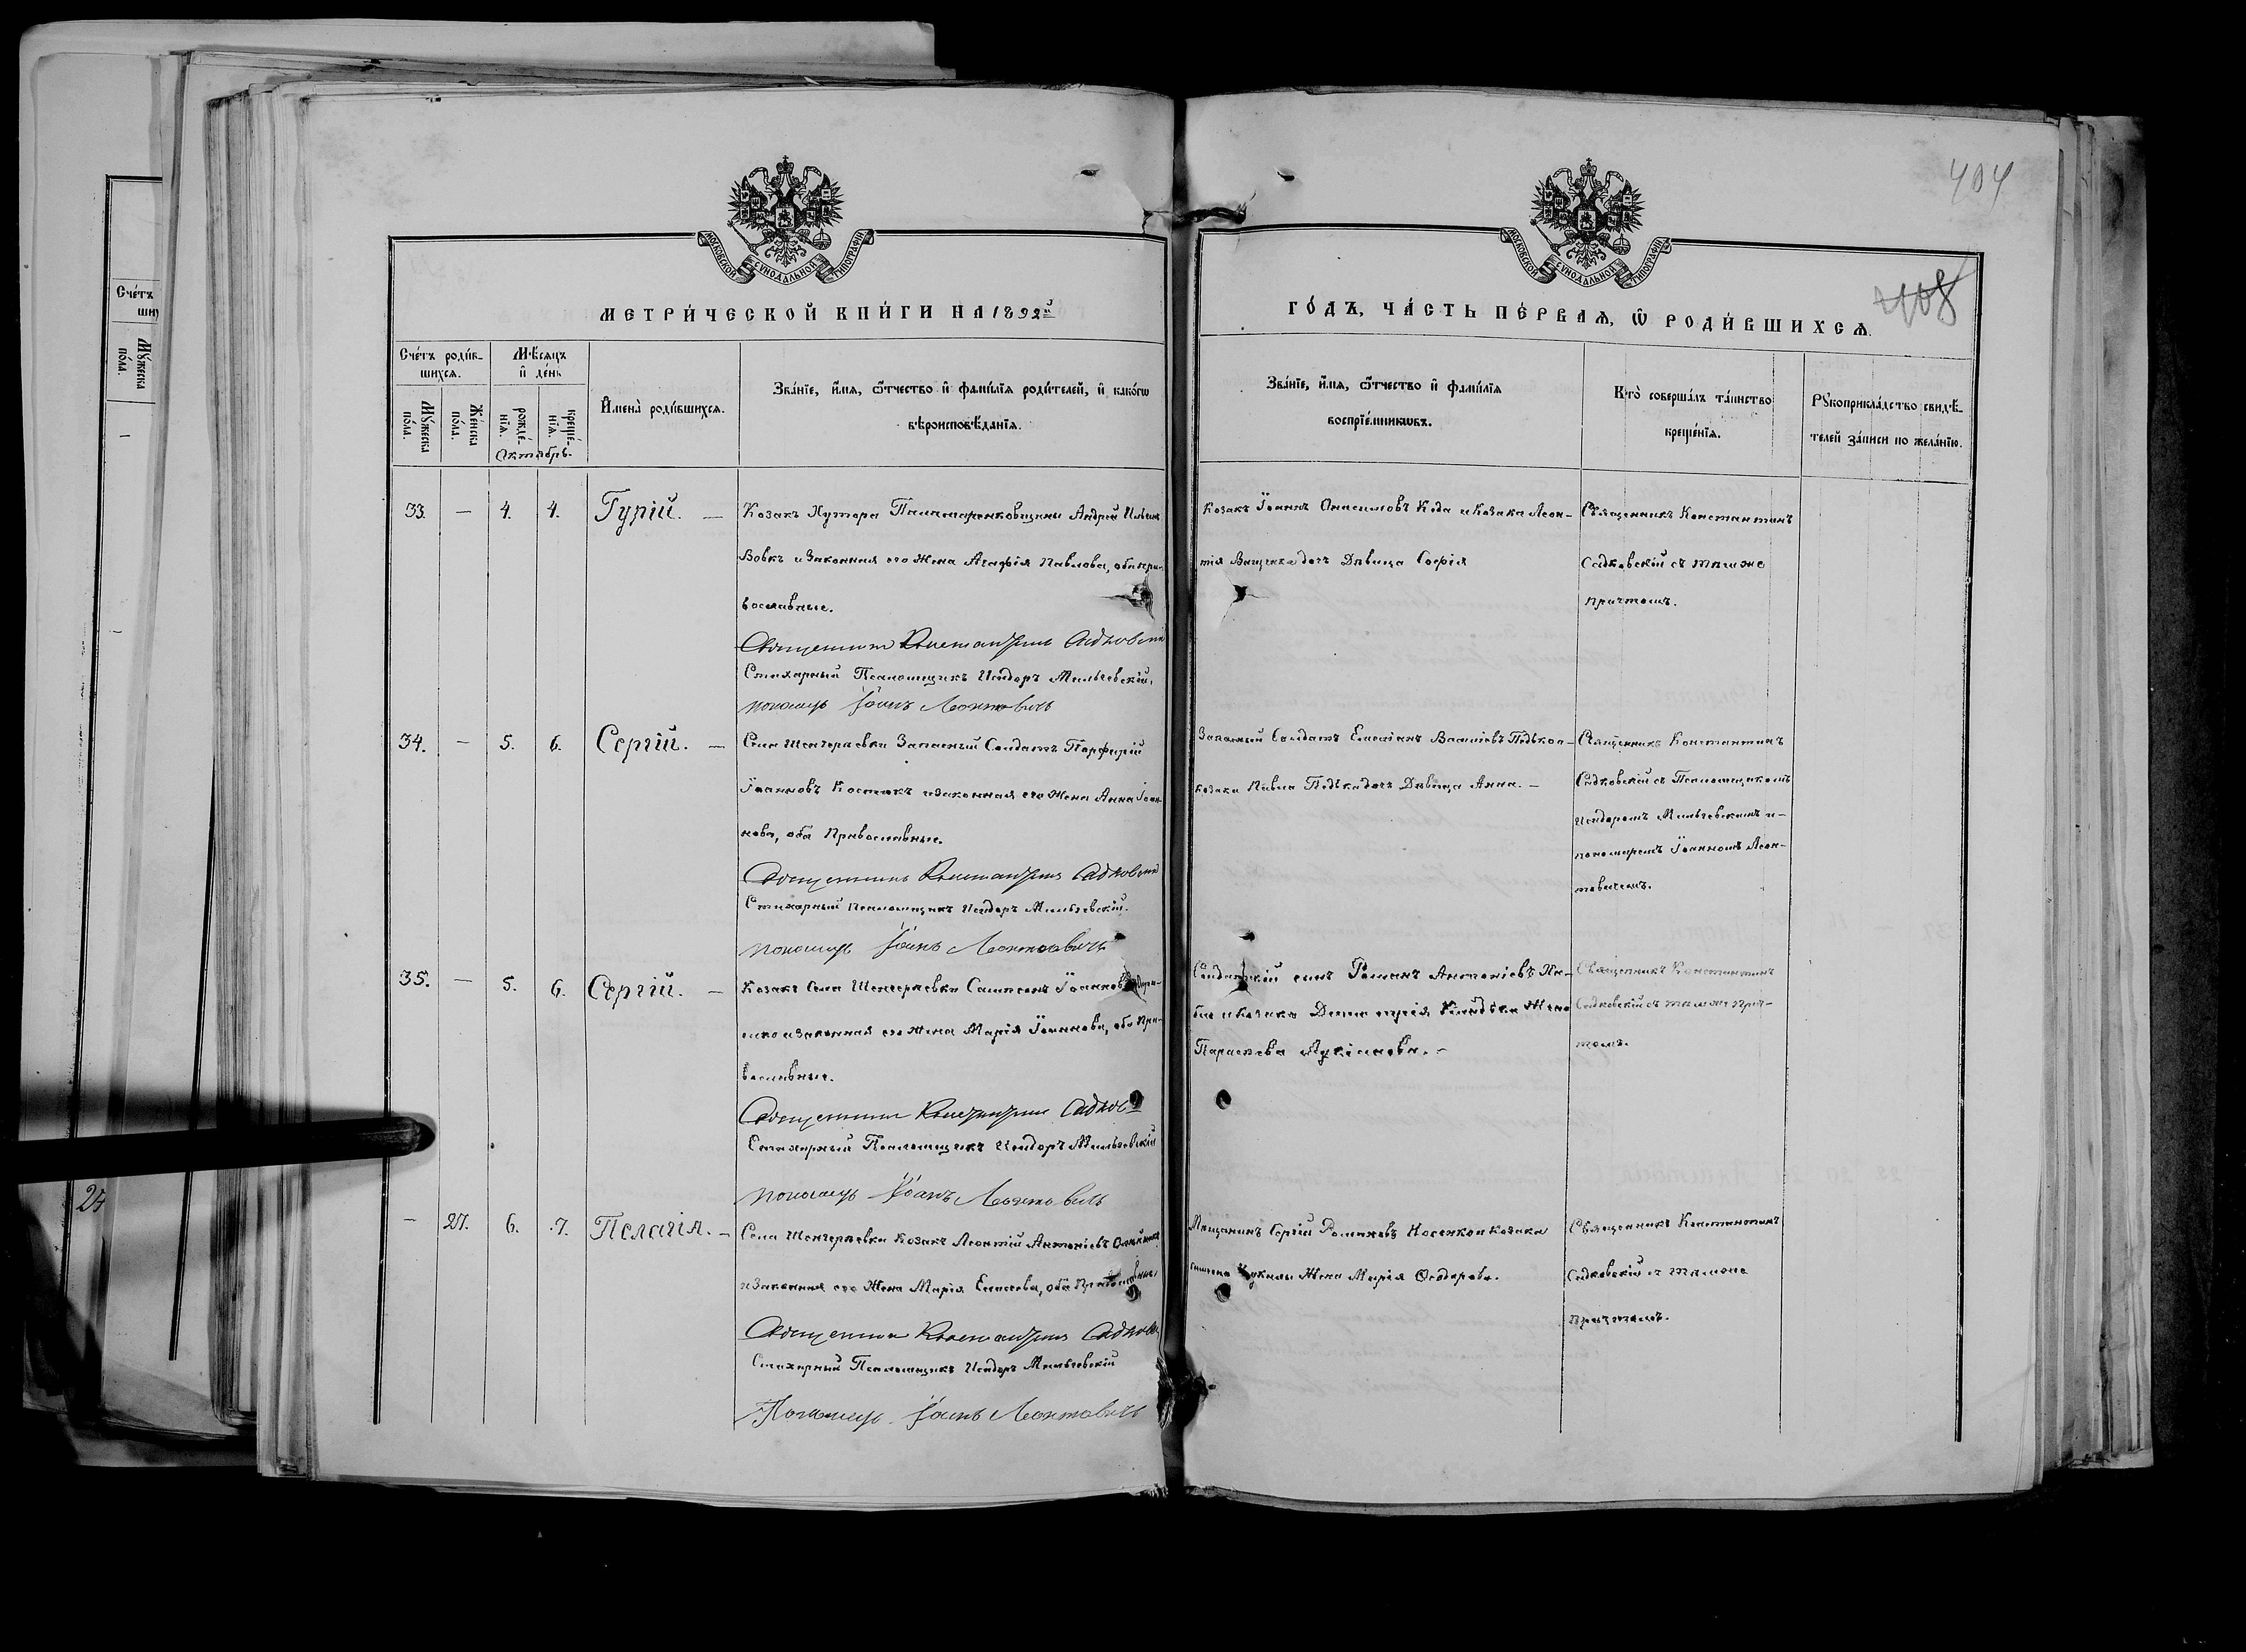 404
408
МОСКОВСКОЙ СѴНОДАЛЬНОЙ ТИПОГРАФІИ
МОСКОВСКОЙ СѴНОДАЛЬНОЙ ТИПОГРАФІИ
МЕТРИ́ЧЕСКОЙ КНИ́ГИ НА 1892й
ГО́ДЪ, ЧА́СТЬ ПЕ́РВАЯ, Ѡ РОДИ́ВШИХСЯ.
Сче́тъ роди́в-
шихся.
Му́жеска по́ла.
Же́нска по́ла.
Мѣ́сяцъ
и де́нь
рожде́-нія.
креще́-нія.
Октябрь.
И҆мена̀ роди́вшихся.
Зва́ніе, и҆́мя, ѻ҆́тчество и҆ фами́лія роди́телей, и҆ како́гѡ
вѣроисповѣ́данія.
Зва́ніе, и҆́мя, ѻ҆́тчество и҆ фами́лія
воспріе́мникѡвъ.
Кто̀ соверша́лъ та́инство
креще́нія.
Рукоприкла́дство свидѣ́-
телей за́писи по жела́нію.
33. — 4. 4. Гурій. —
Козакъ Хутора Паламаренковщины Андрей Ильинъ
Вовкъ и Законная его Жена Агафія Павлова, оба пра-
вославные.
Священникъ Константинъ Садковскій
Стихарный Псаломщикъ Исидоръ Мильчевскій,
пономарь Іоаннъ Леонтовичъ
Козакъ Іоаннъ Онисимовъ Кода и Козака Леон-
тія дочь Дѣвица Софія
Священникъ Константинъ
Садковскій съ тѣмже
причтомъ.
34. — 5. 6. Сергій. —
Села Шенгерѣевки Запасный Солдатъ Порфирій
Іоанновъ Костюкъ и законная его Жена Анна Іоан-
нова, оба Православные.
Священникъ Константинъ Садковскій
Стихарный псаломщикъ Исидоръ Мильчевскій.
пономарь Іоаннъ Леонтовичъ
Запасный Солдатъ Емеліанъ Василіевъ
козака Павла дочь Дѣвица Анна. —
Священникъ Константинъ
Садковскій съ Псаломщикомъ
Исидоромъ Мильчевскимъ и —
пономаремъ Іоанномъ Леон-
товичемъ.
35. — 5. 6. Сергій. —
Козакъ Села Шенгерѣевки Сампсонъ Іоанновъ
и законная его Жена Марія Іоаннова, оба Пра-
вославные.
Священникъ Константинъ Садков
Стихарный Псаломщикъ Исидоръ Мильчевскій
пономарь Іоаннъ Леонтовичъ
Солдатскій сынъ Романъ Антоніевъ
и Козака Жена
Параскева Лукіанова. —
Священникъ Константинъ
Садковскій съ тѣмже при-
томъ.
— 27. 6. 7. Пелагія. —
Села Шенгерѣевки Козакъ Леонтій Антоніевъ
и Законная его Жена Марія Елисеева, оба Православные
Священникъ Константинъ Садковс
Стихарный Псаломщикъ Исидоръ Мильчевскій
Пономарь Іоаннъ Леонтовичъ
Мѣщанинъ Сергій Романовъ Носенко и козака
Жена Марія Ѳеодорова.
Священникъ Константинъ
Садковскій съ тѣмже
Причтомъ.
Сче́тъ
Му́жеска по́ла.
24